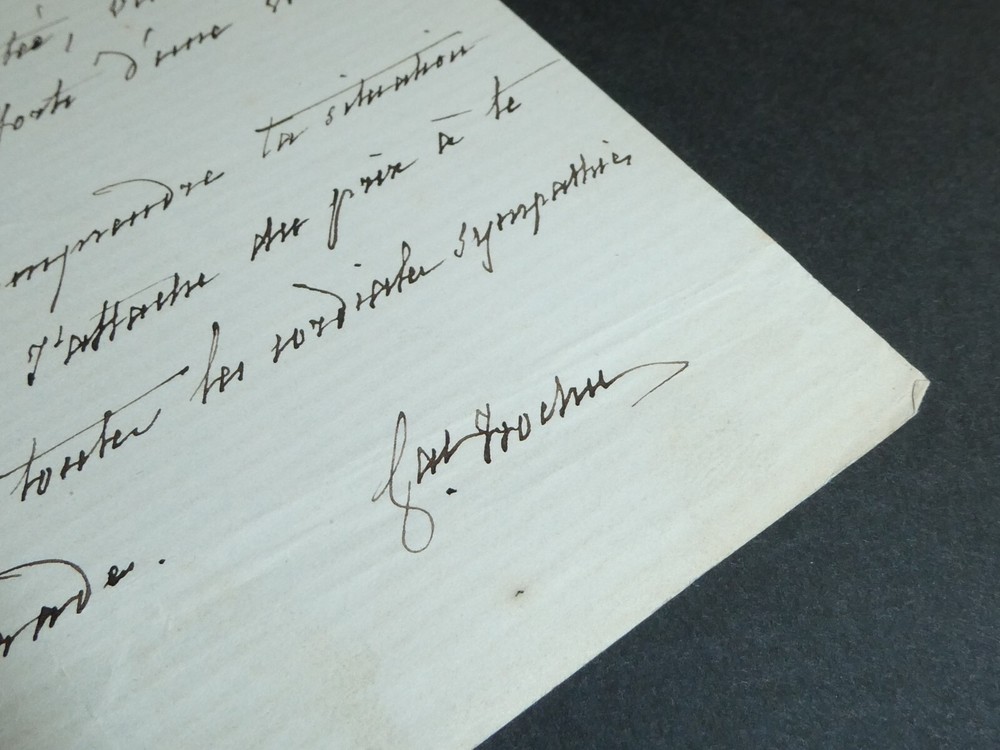 d'une
mprendre ta situation
s'attache du prix à te
toutes les cordiales sympathies
Gal Trochu